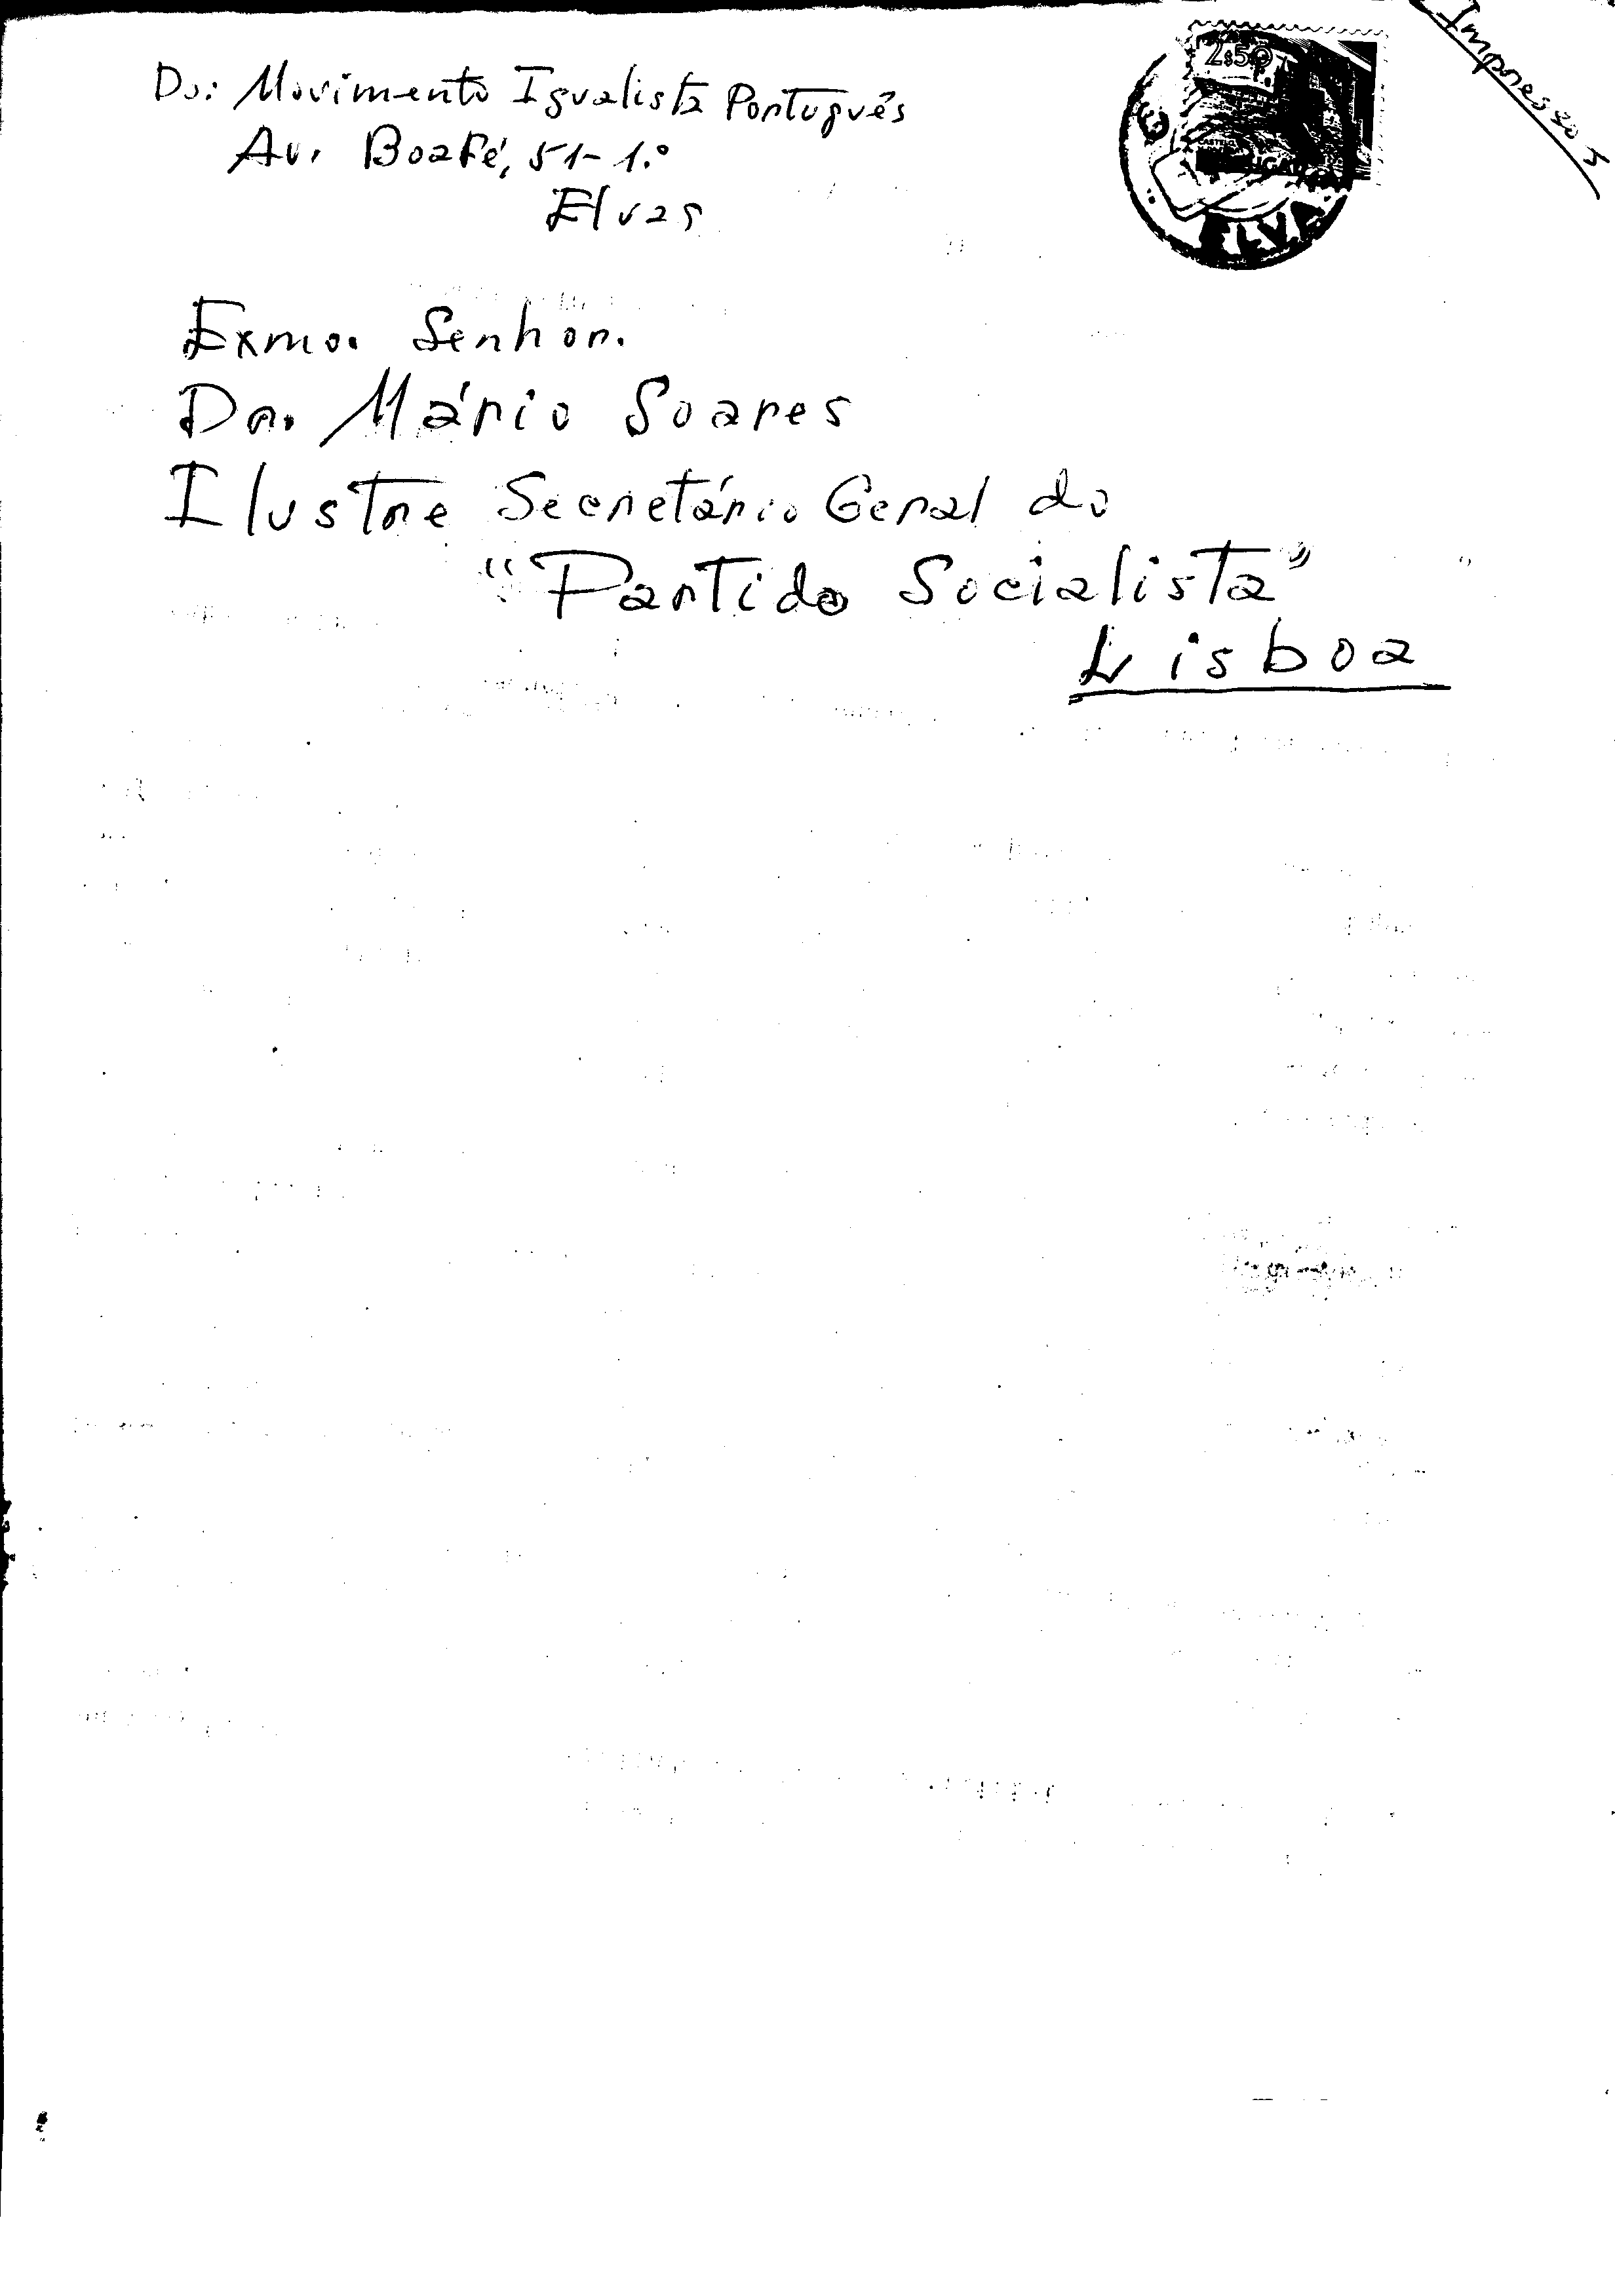 Do: Movimento Igualista Português
Av. Boa Fé, 51-1.º
Elvas
Impressos
2$50
ELVAS
Exmo. Senhor.
Dr. Mário Soares
Ilustre Secretário Geral do
"Partido Socialista"
Lisboa